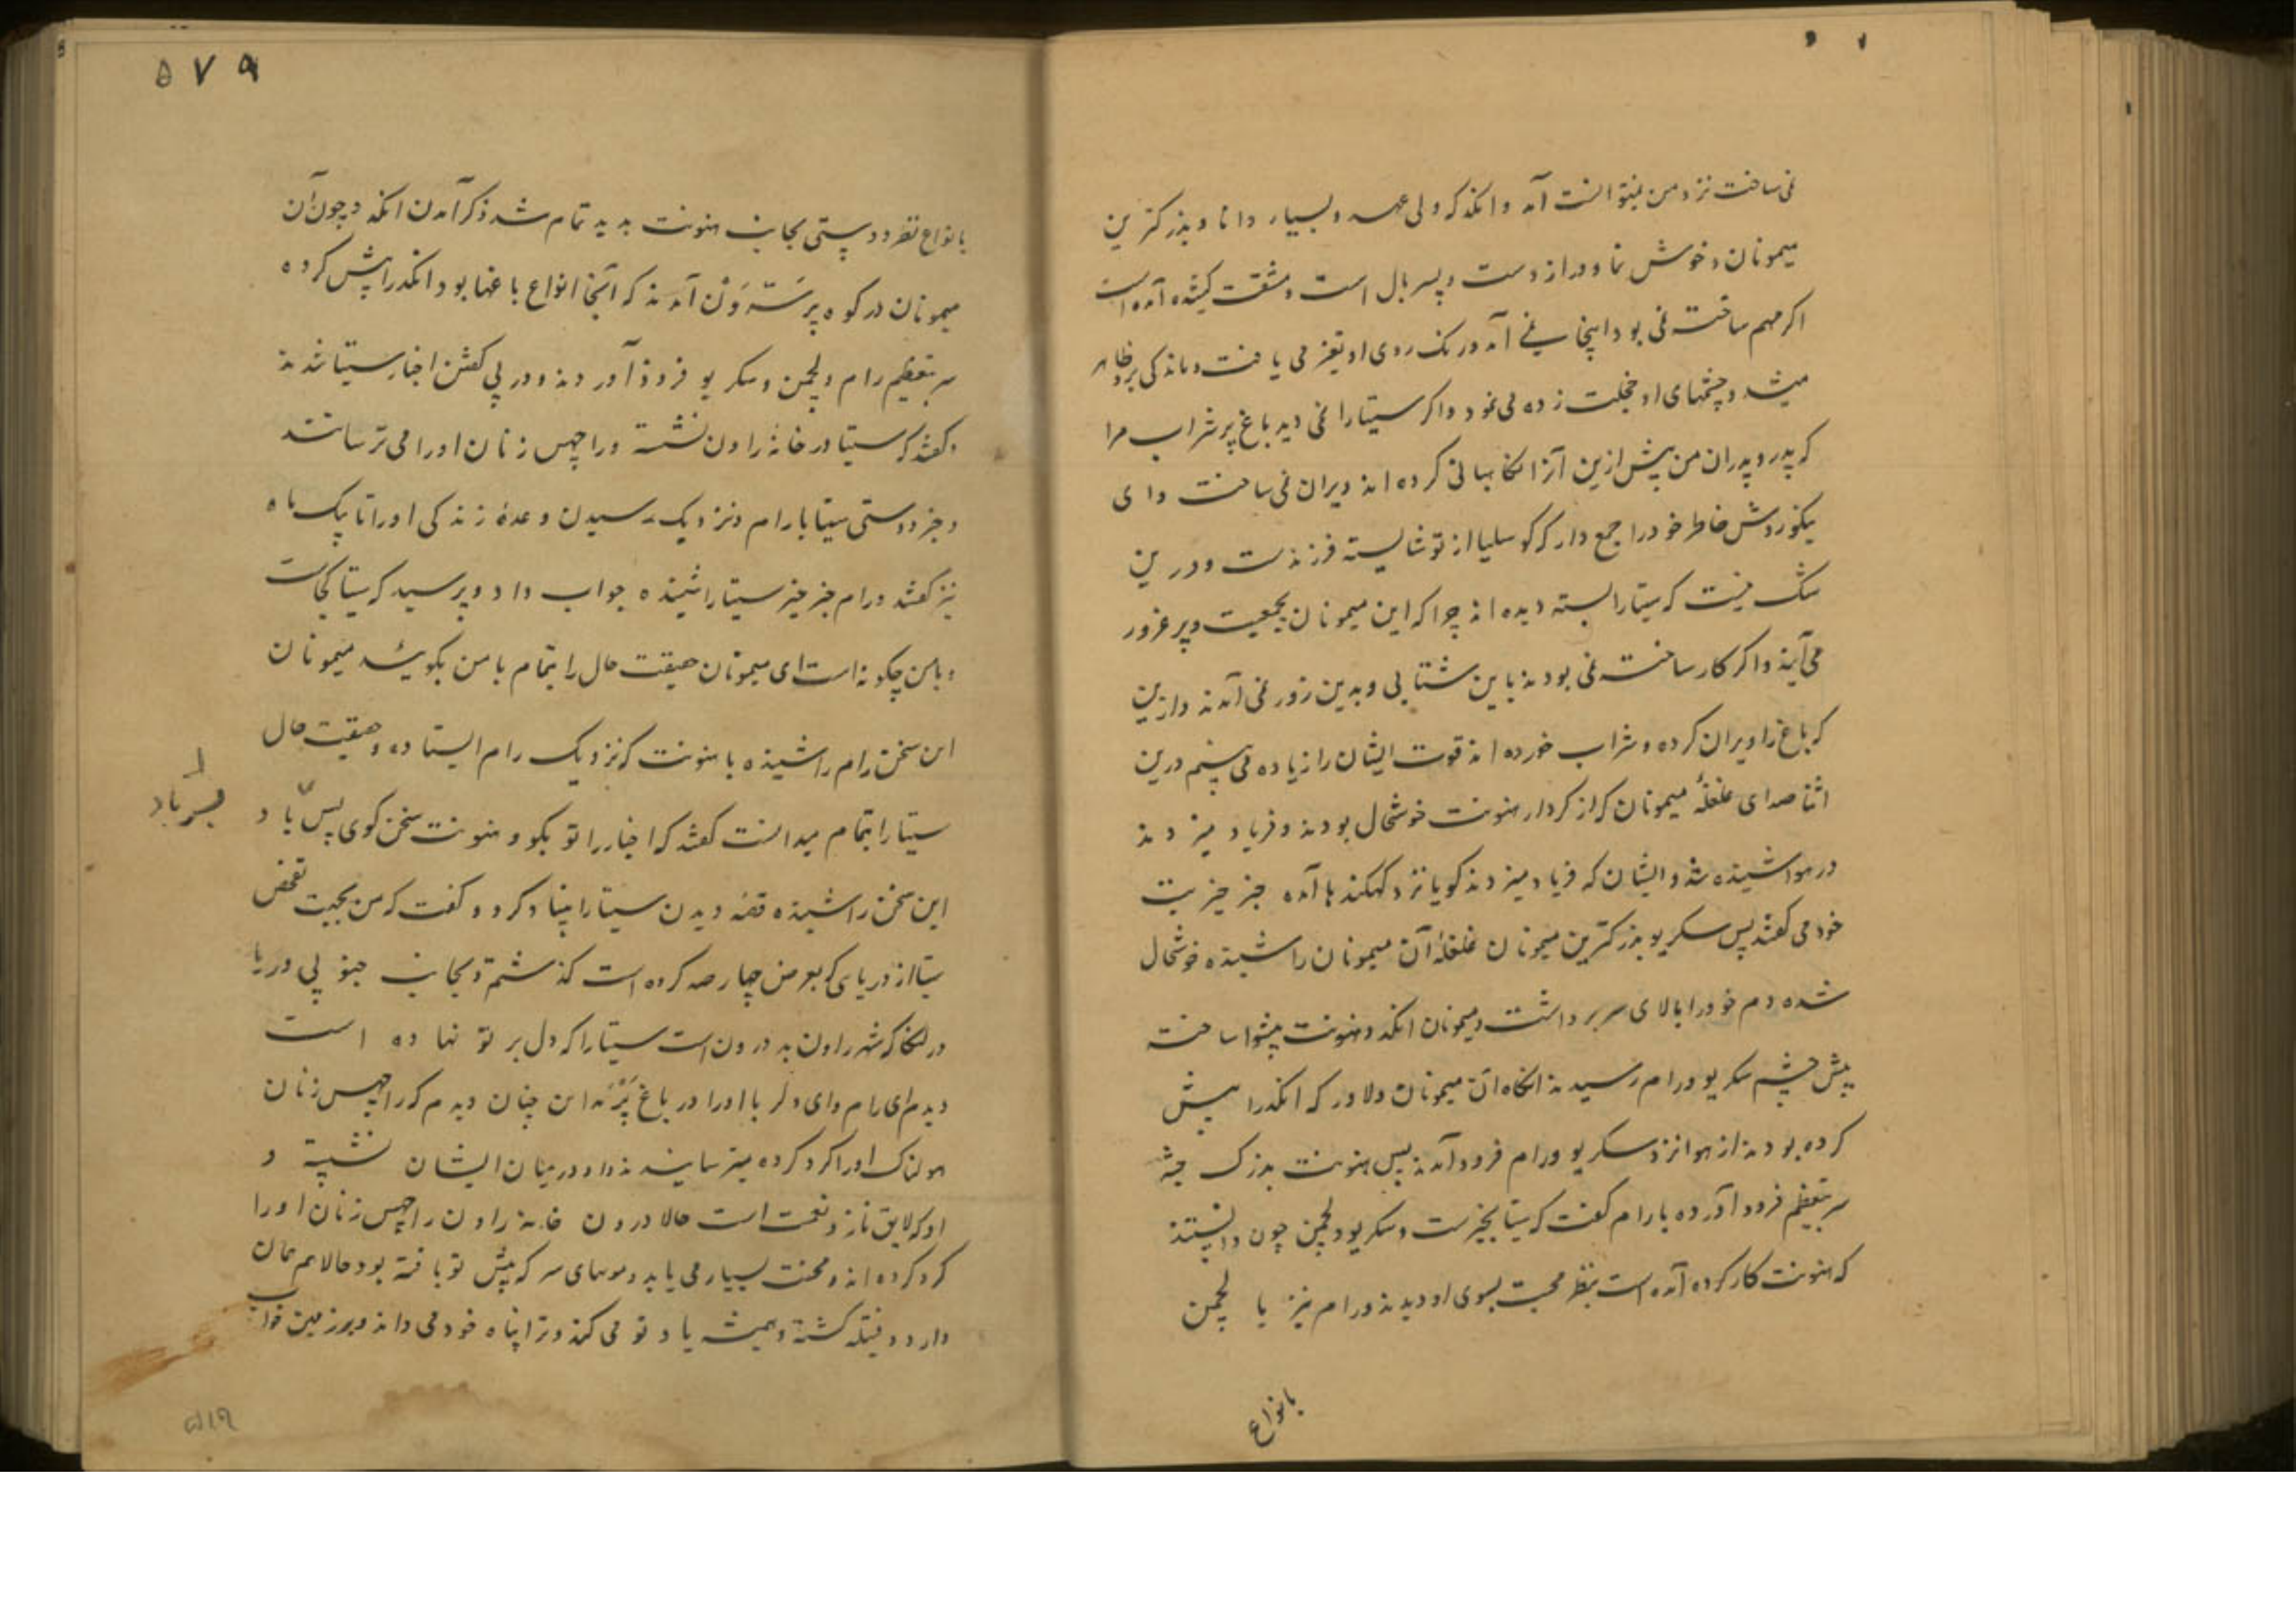 نمی ساخت نزد من نمیتوانست آمد و انکد که ولی عهد و بسیار دانا و بزرکترین
میمونان و خوش نما و دراز دست و پسر بال است و مشقت کشیده آمده است
اکر مهم ساخته نمی بود اینجا نمی آمد و رنک روی او تغیر می یافت و ماندکی برو ظاهر
میشد و چشمهای او خجلت زده می نمود و اکر سیتا را نمی دید باغ پر شراب مرا
که پدر و پدران من پیش ازین آنرا نکاهبانی کرده اند ویران نمی ساخت و ای
نیکو روش خاطر خود را جمع دار که کوسلیا از تو شایسته فرزندست و درین
شک نیست که سیتا را البته دیده اند چرا که این میمونان بجمعیت و پر غرور
می آیند و اکر کار ساخته نمی بودند باین شتابی و بدین زور نمی آمدند و ازین
که باغ را ویران کرده و شراب خورده اند قوت ایشان را زیاده می بینم درین
اثنا صدای غلغلهٔ میمونان که از کردار هنونت خوشحال بودند و فریاد میزدند
در هوا شنیده شد و ایشان که فریاد میزدند کویا نزد کهکندها آمده خبر خیریت
خود می کفتند پس سکریو بزرکترین میمونان غلغلهٔ آن میمونان را شنیده خوشحال
شده دم خود را بالای سر برداشت و میمونان انکد و هنونت پیشوا ساخته
پیش چشم سکریو و رام رسیدند انکاه آن میمونان دلاور که انکد را پیش
کرده بودند از هوا نزد سکریو و رام فرود آمدند پس هنونت بزرک جثه
سر بتعظیم فرود آورده با رام کفت که سیتا بخیرست و سکریو و لچمن چون دانستند
که هنونت کار کرده آمده است بنظر محبت بسوی او دیدند و رام نیز با لچمن
بانواع
۵۷۹
بانواع نظر دوستی بجانب هنونت بدید تمام شد ذکر آمدن انکد و چون آن
میمونان در کوه پرسته ون آمدند که آنجا انواع باغها بود انکد را پیش کرده
سر بتعظیم رام و لچمن و سکریو فرود آوردند و در پی کفتن اخبار سیتا شدند
و کفتند که سیتا در خانهٔ راون نشسته و راچهس زنان او را می ترسانند
و خبر دوستی سیتا با رام و نزدیک رسیدن وعدهٔ زندکی او را تا یک ماه
نیز کفتند و رام خبر خیر سیتا را شنیده جواب داد و پرسید که سیتا کجاست
و با من چکونه است ای میمونان حقیقت حال را بتمام با من بکویید میمونان
این سخن رام را شنیده با هنونت که نزدیک رام ایستاده و حقیقت حال
سیتا را بتمام میدانست کفتند که اخبار را تو بکو و هنونت سخن کوی پس باد
پسر باد
این سخن را شنیده قصهٔ دیدن سیتا را بنیاد کرد و کفت که من بجهت تفحص
سیتا از دریای که بعرض چهار صد کروه است کذشتم و بجانب جنوبی دریا
در لنکا که شهر راون بد درون است سیتا را که دل بر تو نهاده است
دیدم ای رام و ای دلربا او را در باغ چنان دیدم که راچهس زنان
هولناک او را کرد کرده میترسانیدند و او در میان ایشان نشسته و
او که لایق ناز و نعمت است حالا درون خانهٔ راون راچهس زنان او را
کرد کرده اند و محنت بسیار می یابد و موهای سر که پیش تو بافته بود حالا هم همان
دارد و فتیله کشته و همیشه یاد تو می کند و ترا پناه خود می داند و بر زمین خواب
۵۷۹